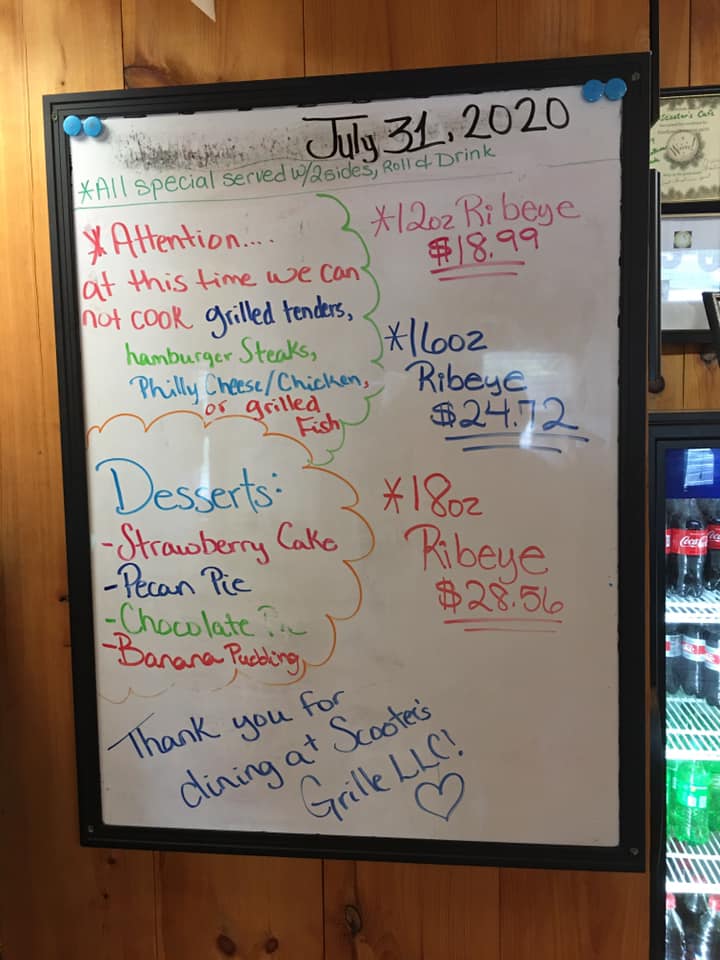 July 31, 2020
*All special served w/2sides, Roll & Drink
*Attention....
at this time we can
not cook grilled tenders,
hamburger Steaks,
Philly Cheese/Chicken,
or grilled
Fish
*12oz Ribeye
$18.99
*16oz
Ribeye
$24.72
*18oz
Ribeye
$28.56
Desserts:
-Strawberry Cake
-Pecan Pie
-Chocolate Pie
-Banana Pudding
Thank you for
dining at Scooter's
Grille LLC!
Scooter's Cafe
Coca-Cola